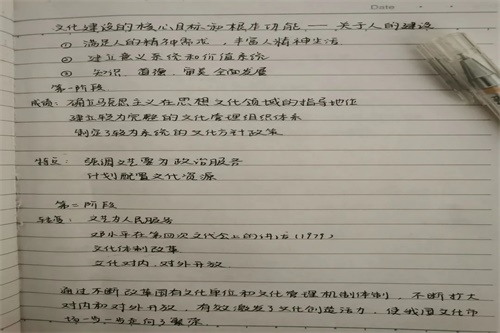 Date
文化建设的核心目标和根本功能 —— 关于人的建设
① 满足人的精神需求，丰富人精神生活
② 建立意义系统和价值系统
③ 知识、道德、审美全面发展
第一阶段
成绩：确立马克思主义在思想文化领域的指导地位
建立较为完整的文化管理组织体系
制定了较为系统的文化方针政策
特点：强调文艺要为政治服务
计划配置文化资源
第二阶段
转变：文艺为人民服务
邓小平在第四次文代会上的讲话（1979）
文化体制改革
文化对内、对外开放
通过不断改革国有文化单位和文化管理机制体制，不断扩大
对内和对外开放，有效激发了文化创造活力，使我国文化市
场一步一步走向了繁荣